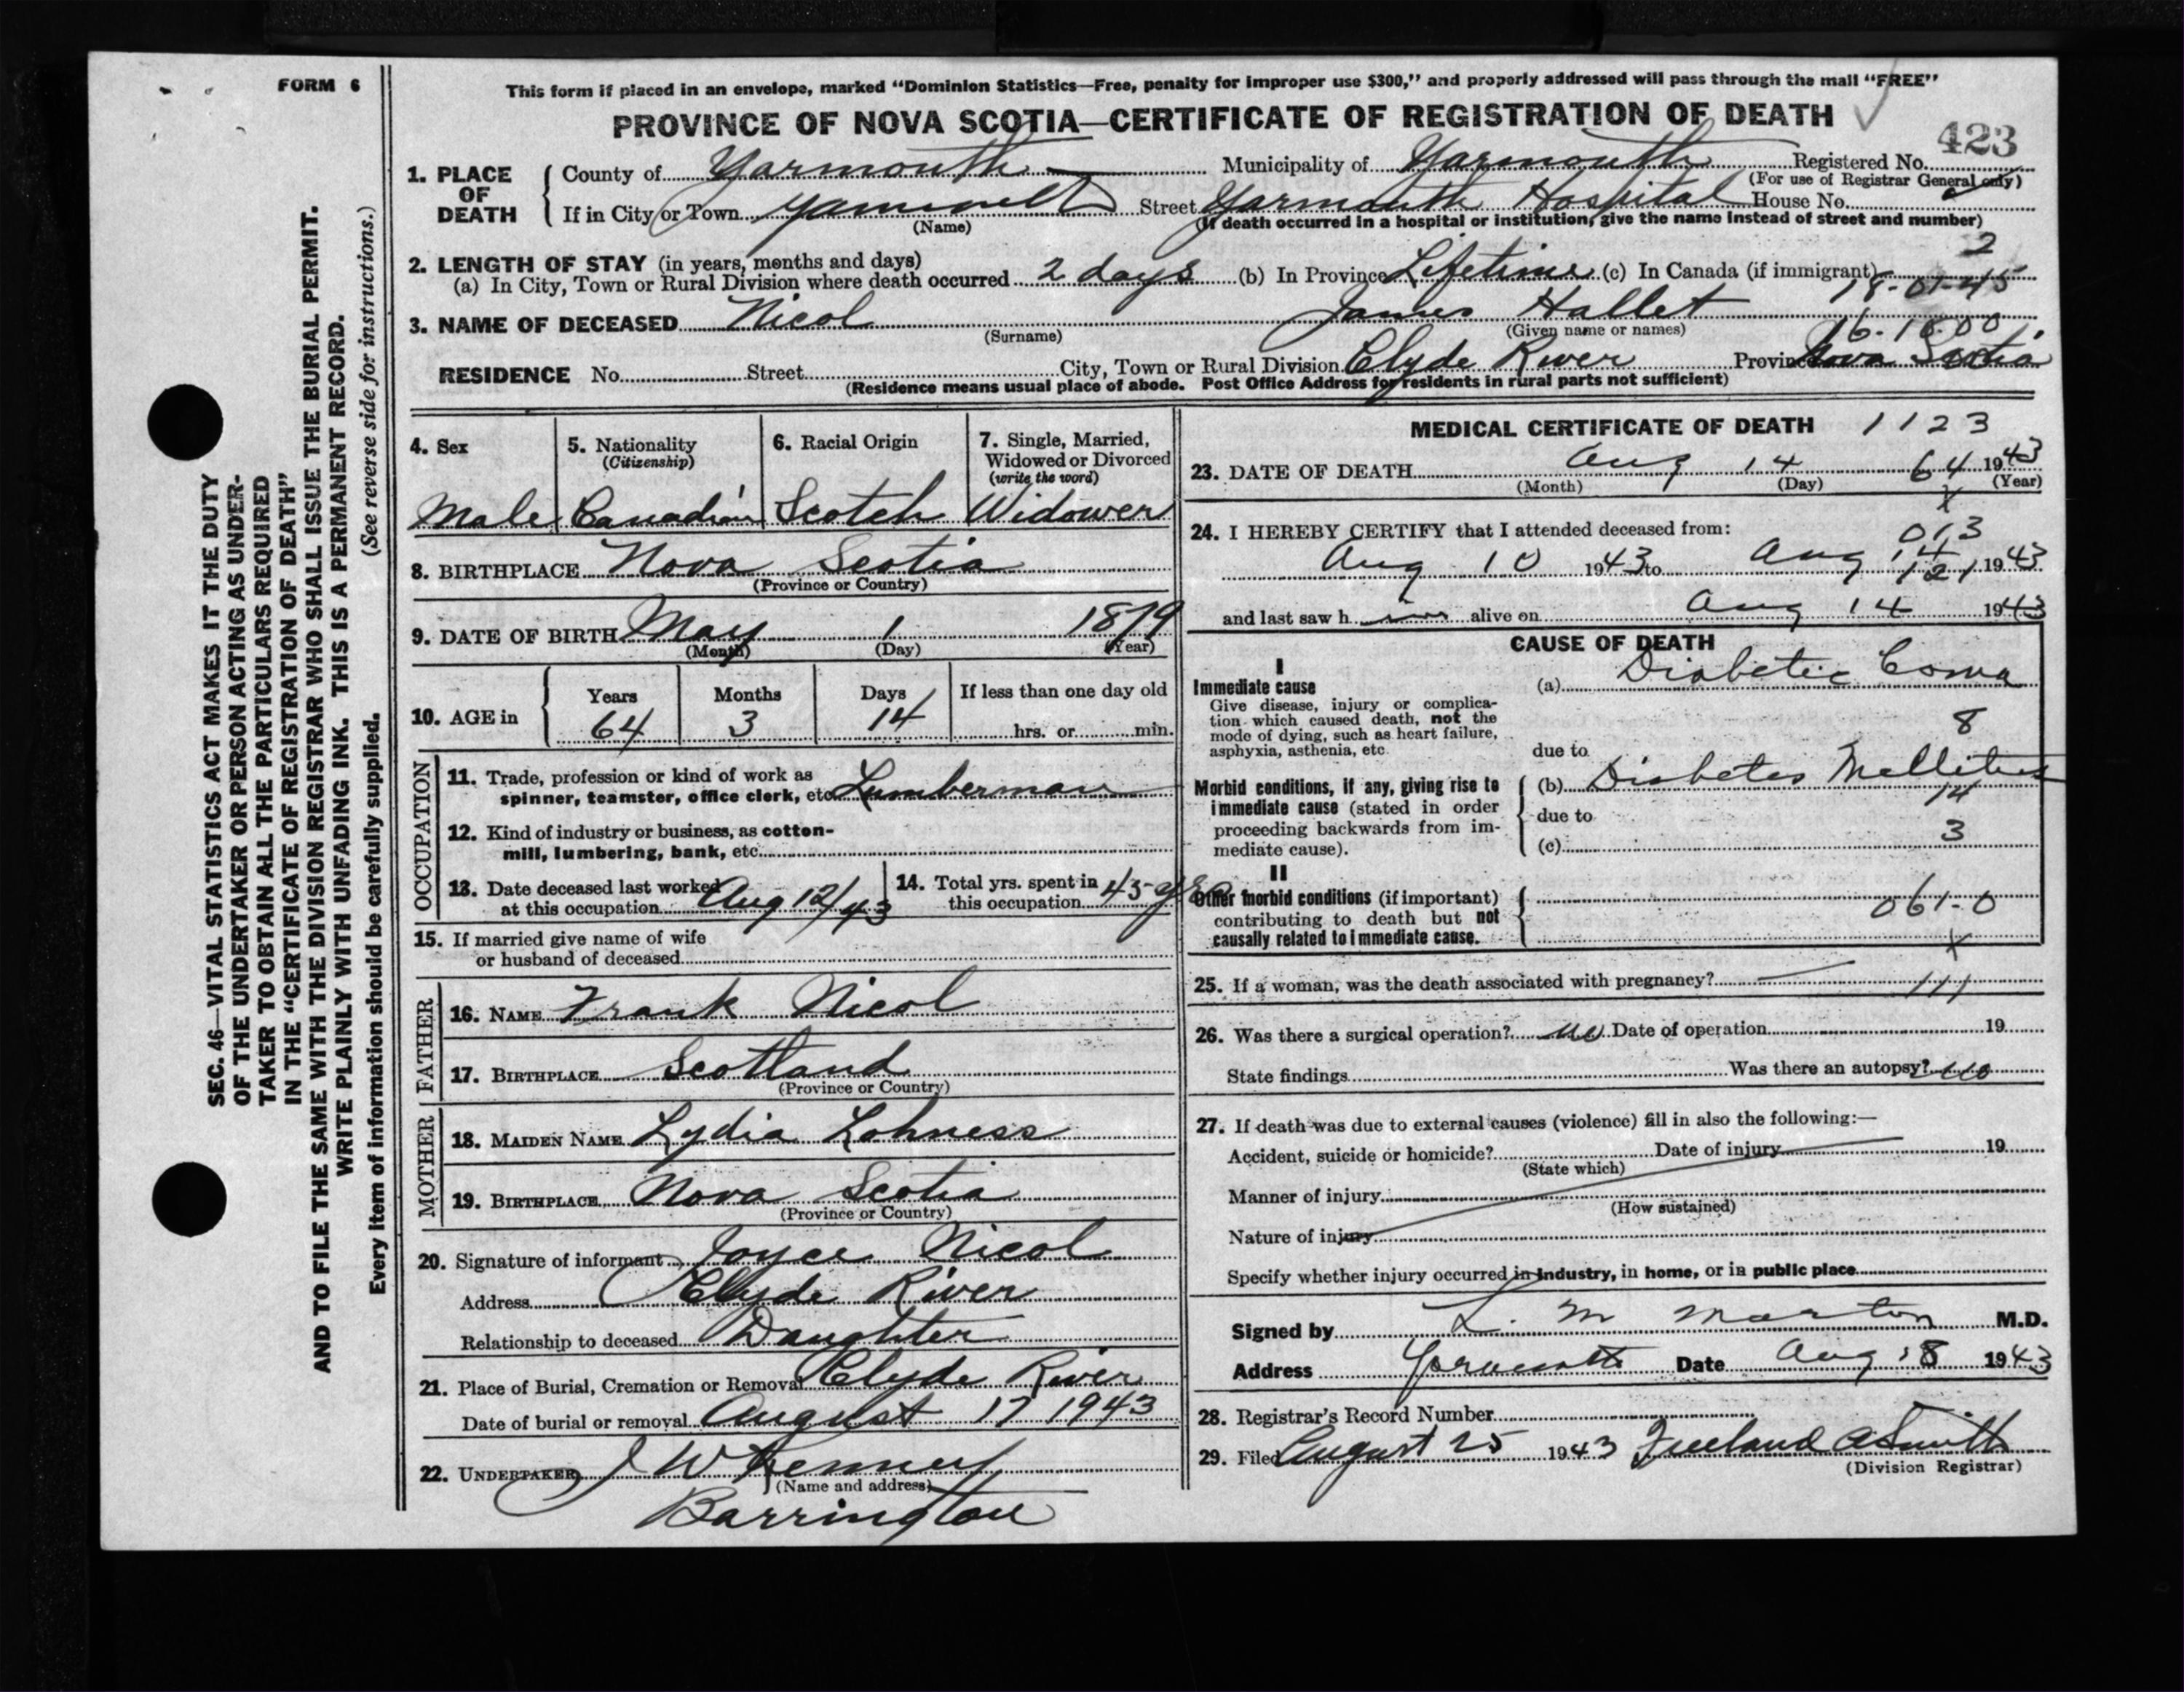 FORM 6
This form if placed in an envelope, marked “Dominion Statistics—Free, penalty for improper use $300,” and properly addressed will pass through the mail “FREE”
PROVINCE OF NOVA SCOTIA—CERTIFICATE OF REGISTRATION OF DEATH
423
1. PLACE OF DEATH
County of Yarmouth Municipality of Yarmouth Registered No.
(For use of Registrar General only)
If in City or Town Yarmouth Street Yarmouth Hospital House No.
(Name) (If death occurred in a hospital or institution, give the name instead of street and number)
2
2. LENGTH OF STAY (in years, months and days)
(a) In City, Town or Rural Division where death occurred 2 days (b) In Province Lifetime (c) In Canada (if immigrant)
18-01-45
3. NAME OF DECEASED Nicol James Hallet
(Surname) (Given name or names)
16-18-00
RESIDENCE No. Street City, Town or Rural Division Clyde River Province Nova Scotia
(Residence means usual place of abode. Post Office Address for residents in rural parts not sufficient)
4. Sex
Male
5. Nationality
(Citizenship)
Canadian
6. Racial Origin
Scotch
7. Single, Married,
Widowed or Divorced
(write the word)
Widower
8. BIRTHPLACE Nova Scotia
(Province or Country)
9. DATE OF BIRTH May 1 1879
(Month) (Day) (Year)
10. AGE in
Years Months Days If less than one day old
64 3 14 hrs. or min.
OCCUPATION
11. Trade, profession or kind of work as
spinner, teamster, office clerk, etc. Lumberman
12. Kind of industry or business, as cotton-
mill, lumbering, bank, etc.
13. Date deceased last worked
at this occupation Aug 12/43
14. Total yrs. spent in
this occupation 45 yrs
15. If married give name of wife
or husband of deceased
FATHER
16. NAME Frank Nicol
17. BIRTHPLACE Scotland
(Province or Country)
MOTHER
18. MAIDEN NAME Lydia Lohness
19. BIRTHPLACE Nova Scotia
(Province or Country)
20. Signature of informant Joyce Nicol
Address Clyde River
Relationship to deceased Daughter
21. Place of Burial, Cremation or Removal Clyde River
Date of burial or removal August 17 1943
22. UNDERTAKER J W Kenney
(Name and address)
Barrington
MEDICAL CERTIFICATE OF DEATH 1123
23. DATE OF DEATH Aug 14 64 1943
(Month) (Day) (Year)
X
24. I HEREBY CERTIFY that I attended deceased from:
013
Aug 10 1943 to Aug 14 1943
121
and last saw him alive on Aug 14 1943
CAUSE OF DEATH
I
Immediate cause
Give disease, injury or complica-
tion which caused death, not the
mode of dying, such as heart failure,
asphyxia, asthenia, etc.
(a) Diabetic Coma
8
due to
Morbid conditions, if any, giving rise to
immediate cause (stated in order
proceeding backwards from im-
mediate cause).
(b) Diabetes Mellitus
14
due to
3
(c)
II
Other morbid conditions (if important)
contributing to death but not
causally related to immediate cause.
061-0
X
25. If a woman, was the death associated with pregnancy?
111
26. Was there a surgical operation? no Date of operation 19
State findings Was there an autopsy? no
27. If death was due to external causes (violence) fill in also the following:—
Accident, suicide or homicide? Date of injury 19
(State which)
Manner of injury
(How sustained)
Nature of injury
Specify whether injury occurred in industry, in home, or in public place
Signed by L. M Morton M.D.
Address Yarmouth Date Aug 18 1943
28. Registrar's Record Number
29. Filed August 25 1943 Freeland A Smith
(Division Registrar)
SEC. 46—VITAL STATISTICS ACT MAKES IT THE DUTY
OF THE UNDERTAKER OR PERSON ACTING AS UNDER-
TAKER TO OBTAIN ALL THE PARTICULARS REQUIRED
IN THE “CERTIFICATE OF REGISTRATION OF DEATH”
AND TO FILE THE SAME WITH THE DIVISION REGISTRAR WHO SHALL ISSUE THE BURIAL PERMIT.
WRITE PLAINLY WITH UNFADING INK. THIS IS A PERMANENT RECORD.
(See reverse side for instructions.)
Every item of information should be carefully supplied.